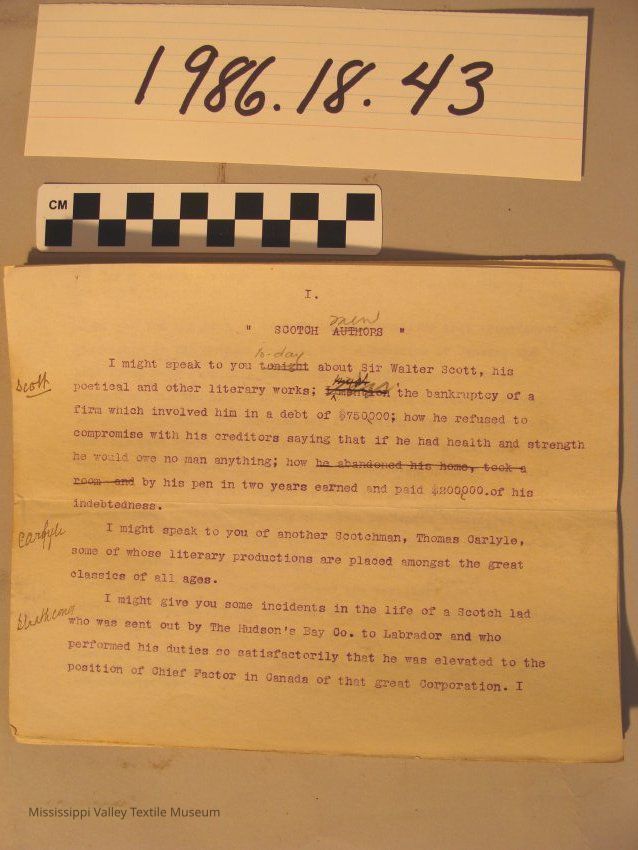 1986.18.43
CM
I.
men
" SCOTCH AUTHORS "
to-day
I might speak to you tonight about Sir Walter Scott, his
Scott
poetical and other literary works; the bankruptcy of a
firm which involved him in a debt of $750,000; how he refused to
compromise with his creditors saying that if he had health and strength
he would owe no man anything; how he abandoned his home, took a
room and by his pen in two years earned and paid $200,000.of his
indebtedness.
Carlyle
I might speak to you of another Scotchman, Thomas Carlyle,
some of whose literary productions are placed amongst the great
classics of all ages.
Strathcona
I might give you some incidents in the life of a Scotch lad
who was sent out by The Hudson's Bay Co. to Labrador and who
performed his duties so satisfactorily that he was elevated to the
position of Chief Factor in Canada of that great Corporation. I
Mississippi Valley Textile Museum